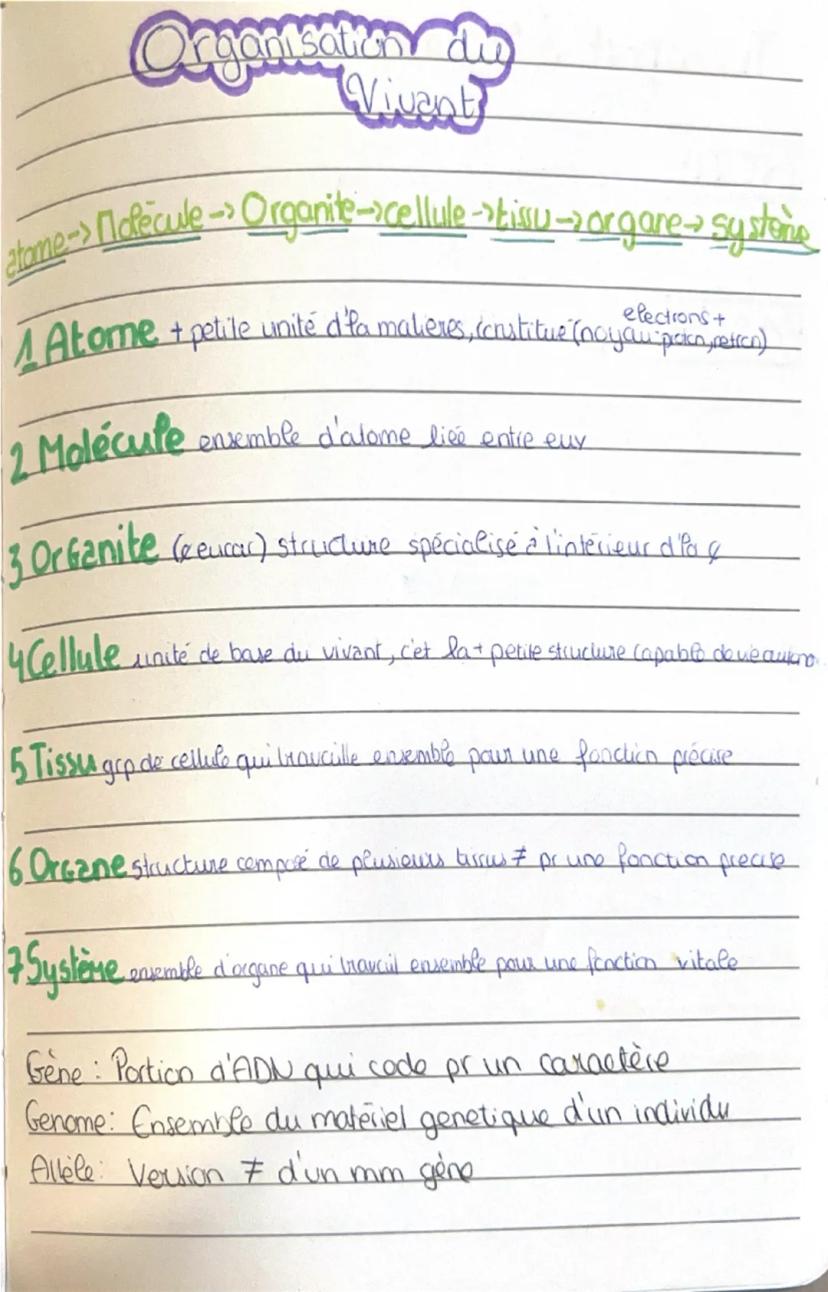 Organisation du
Vivant
atome -> Molécule -> Organite -> cellule -> tissu -> organe -> système
electrons +
1 Atome + petite unité d'la matieres, constitué (noyau
2 Molécule ensemble d'atome liée entre eux
3 Organite structure spécialisé à l'intérieur d'la
4 Cellule unité de base du vivant, c'et la + petite structure capable de vie
5 Tissu grp de cellule qui travaille ensemble pour une fonction précise
6 Organe structure composé de plusieurs tissus ≠ pr une fonction precise
7 Système ensemble d'organe qui travail ensemble pour une fonction vitale
Gène : Portion d'ADN qui code pr un caractère
Genome : Ensemble du matériel genetique d'un individu
Allèle : Version ≠ d'un mm gène